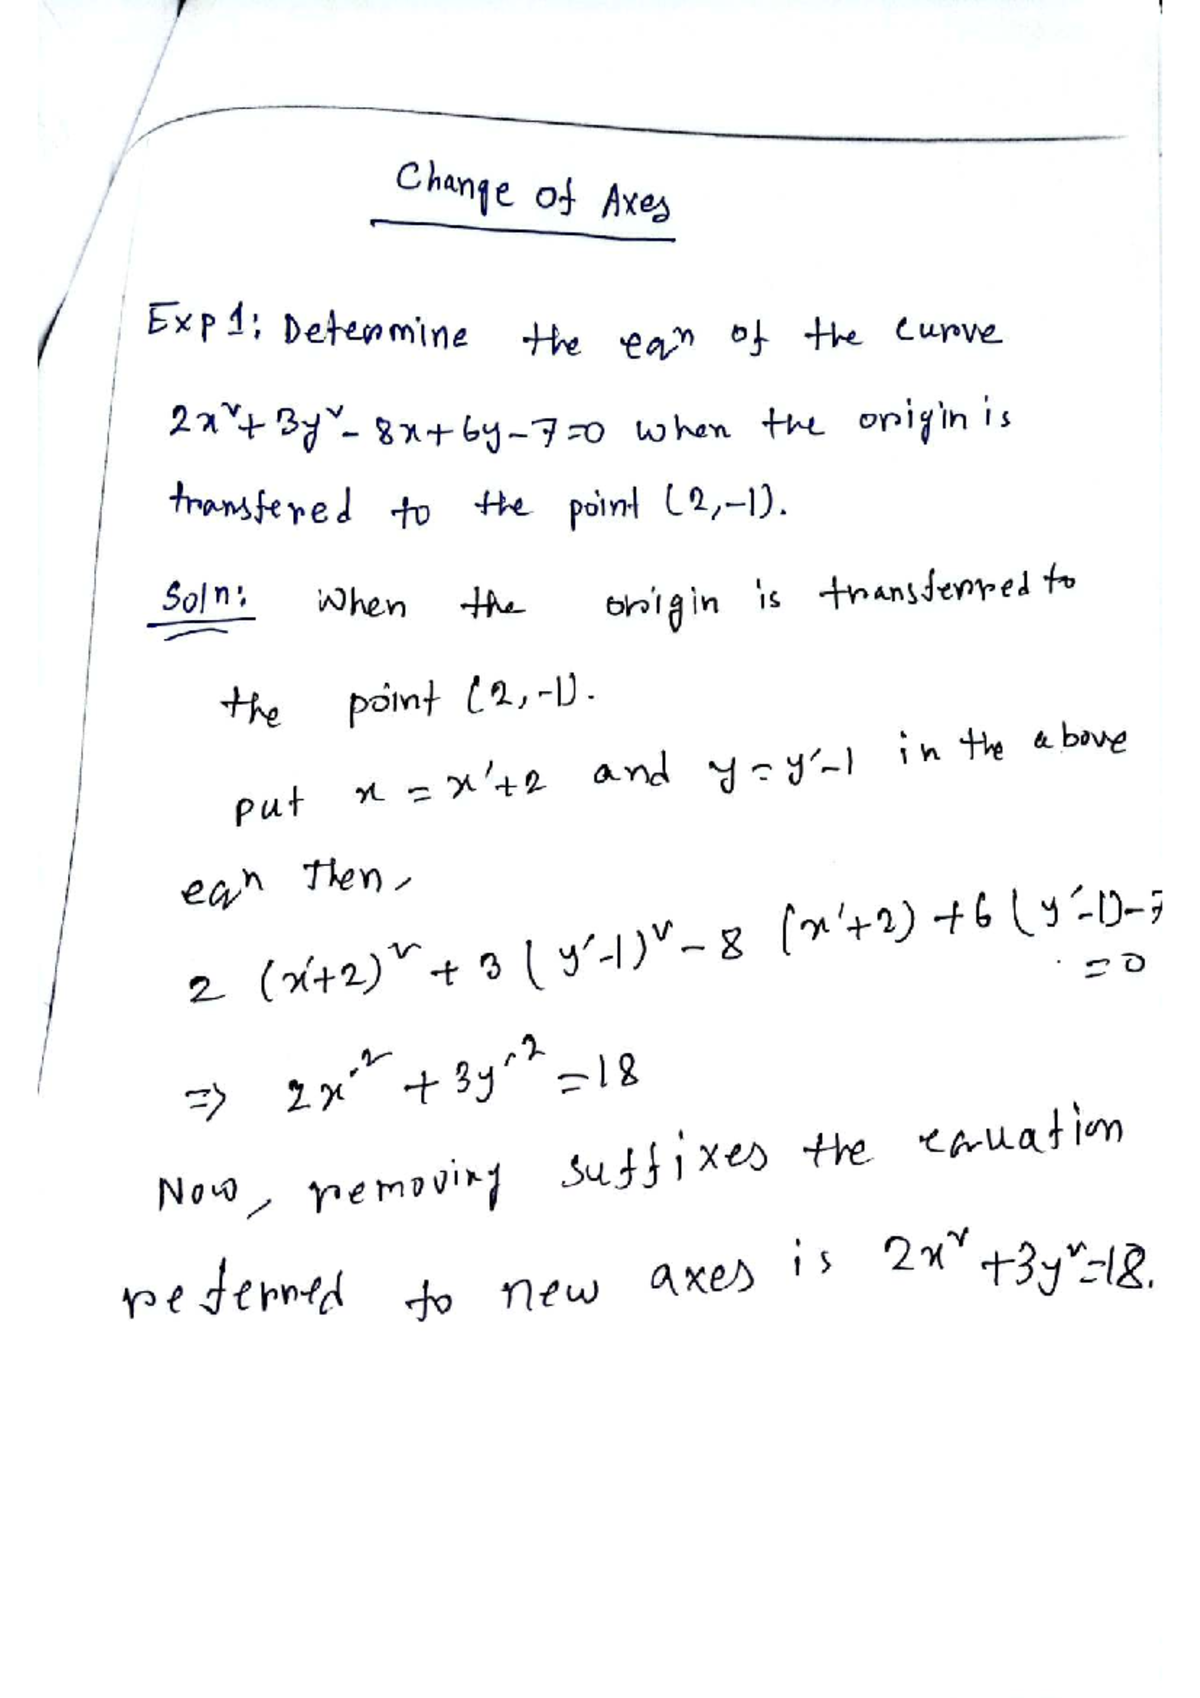 Change of Axes
Exp 1: Determine the eqn of the curve
2x² + 3y² - 8x + 6y - 7 = 0 when the origin is
transfered to the point (2,-1).
Soln: When the origin is transferred to
the point (2,-1).
put x = x'+2 and y = y'-1 in the above
eqn Then,
2 (x'+2)² + 3 (y'-1)² - 8 (x'+2) + 6 (y'-1) - 7
= 0
=> 2x'² + 3y'² = 18
Now, removing suffixes the equation
referred to new axes is 2x² + 3y² = 18.